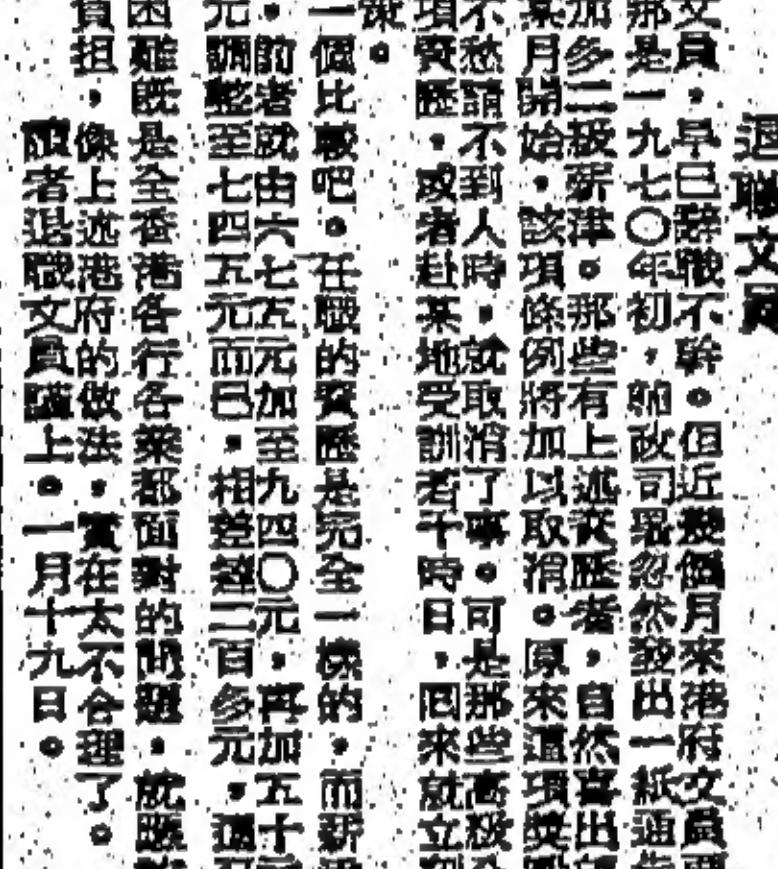 退職文員
文員，早已辭職不幹。但近幾個月來港府文員
那是一九七〇年初，郵政司署忽然發出一紙通
加多二級薪津。那些有上述資歷者，自然喜出
某月開始，該項條例將加以取消。原來這項獎
不愁請不到人時，就取消了事。可是那些高級
項資歷，或者赴某地受訓若干時日，回來就立
策。
一個比較吧。在職的資歷是完全一樣的，而新
元。前者就由六七五元加至九四〇元，再加五十元
元調整至七四五元而已，相差達二百多元，
困難既是全香港各行各業都面對的問題，
負担，像上述港府的做法，實在太不合理了。
讀者退職文員謹上。一月十九日。